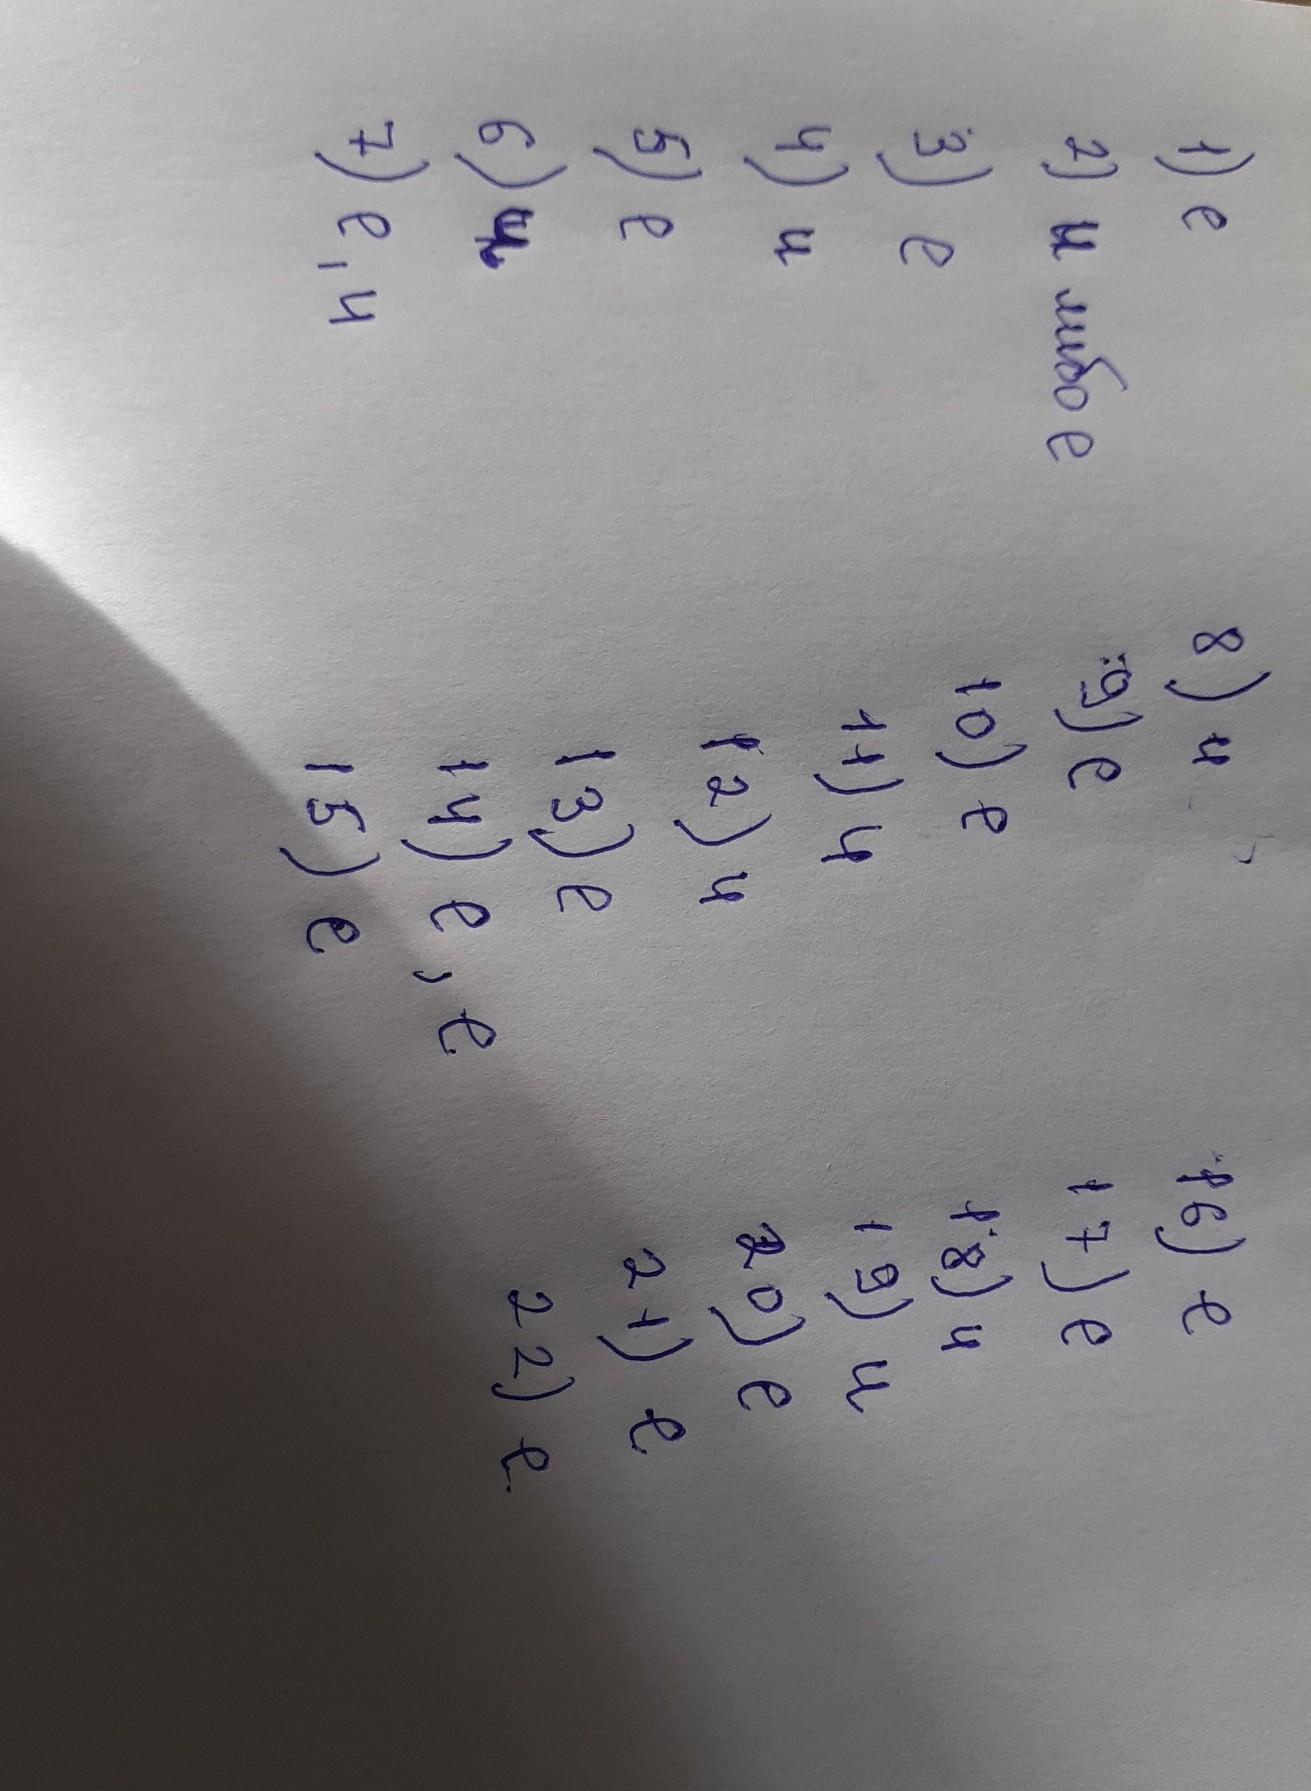 1) е
2) и либо е
3) е
4) и
5) е
6) и
7) е, и
8) и
9) е
10) е
11) и
12) и
13) е
14) е, е
15) е
16) е
17) е
18) и
19) и
20) е
21) е
22) е